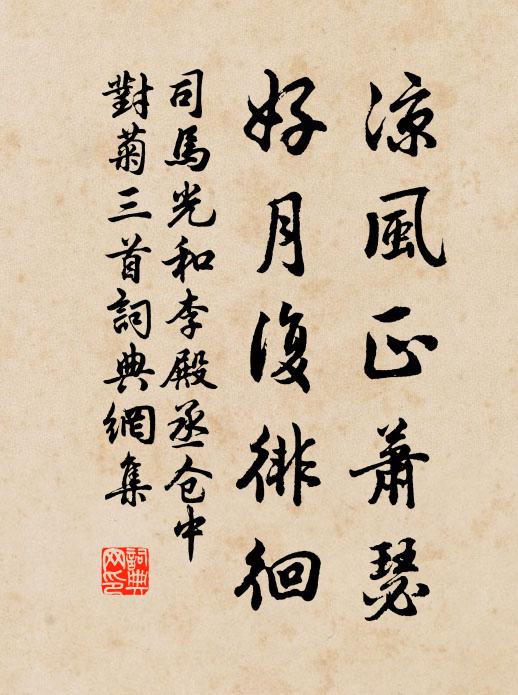 凉風正蕭瑟
好月復徘徊
司馬光和李殿丞仓中
對菊三首詞典網集
詞典
网印